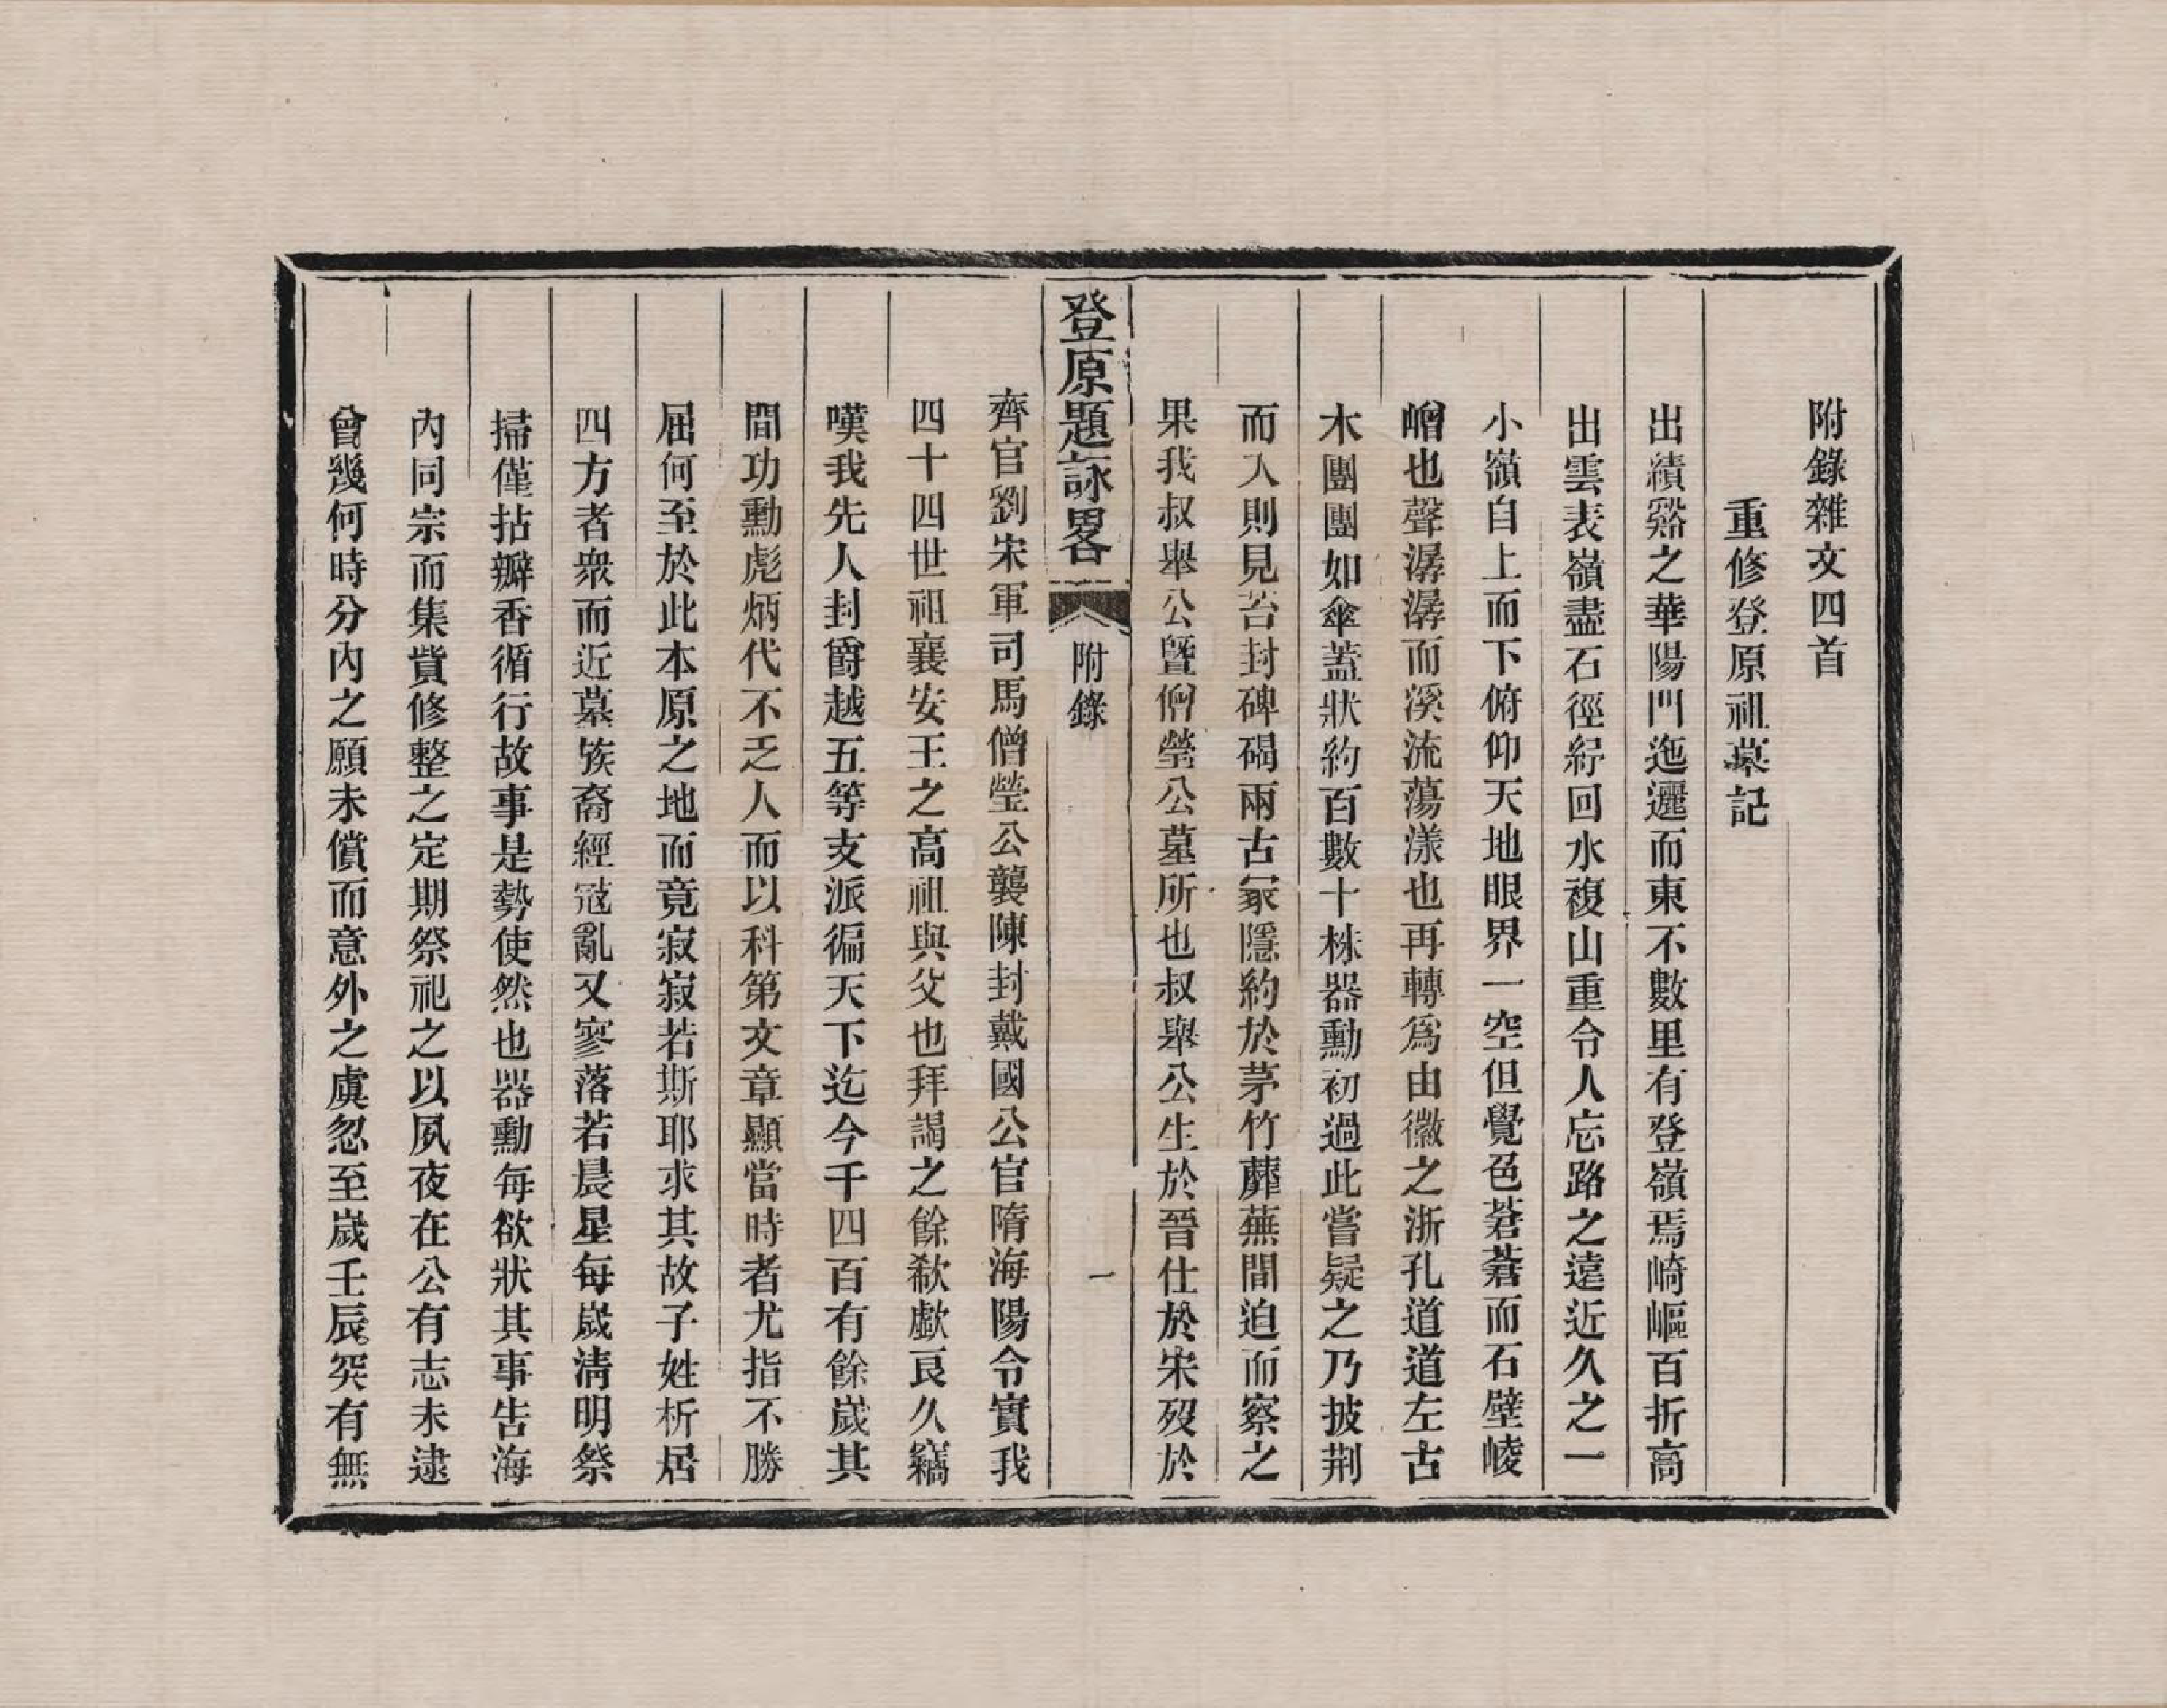 附錄雜文四首
重修登原祖墓記
出績谿之華陽門迤邐而東不數里有登嶺焉崎嶇百折高
出雲表嶺盡石徑紆回水複山重令人忘路之遠近久之一
小嶺自上而下俯仰天地眼界一空但覺色蒼蒼而石壁崚
嶒也聲潺潺而溪流蕩漾也再轉爲由徽之浙孔道道左古
木團團如傘蓋狀約百數十株器勳初過此嘗疑之乃披荆
而入則見苔封碑碣兩古冢隱約於茅竹蘼蕪間迫而察之
果我叔舉公曁僧瑩公墓所也叔舉公生於晉仕於宋歿於
登原題詠畧
附錄
一
齊官劉宋軍司馬僧瑩公襲陳封戴國公官隋海陽令實我
四十四世祖襄安王之高祖與父也拜謁之餘欷歔良久竊
嘆我先人封爵越五等支派徧天下迄今千四百有餘歲其
間功勳彪炳代不乏人而以科第文章顯當時者尤指不勝
屈何至於此本原之地而竟寂寂若斯耶求其故子姓析居
四方者衆而近墓族裔經冦亂又寥落若晨星每歲淸明祭
掃僅拈瓣香循行故事是勢使然也器勳每欲狀其事告海
內同宗而集貲修整之定期祭祀之以夙夜在公有志未逮
曾幾何時分內之願未償而意外之虞忽至歲壬辰突有無